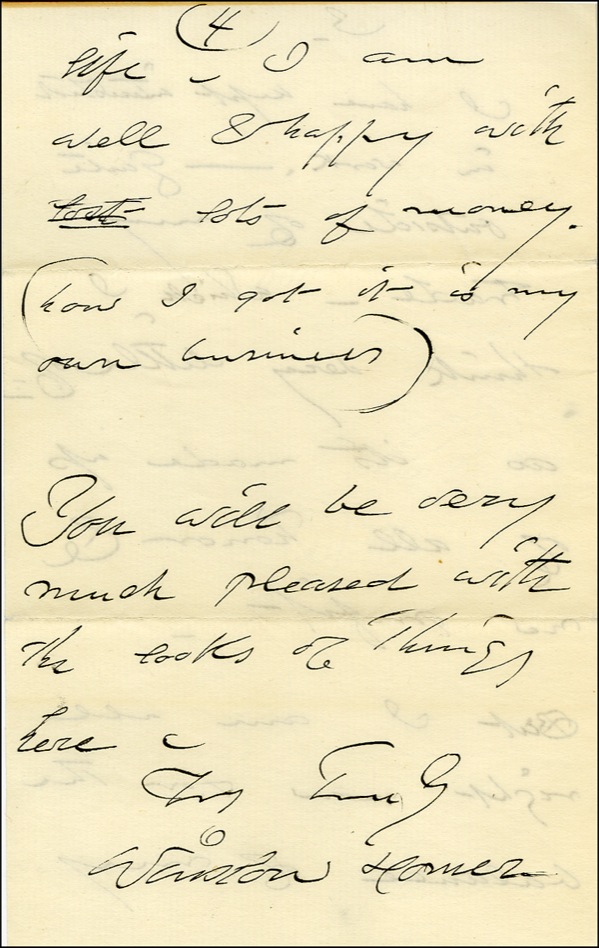 (4)
life – I am
well & happy with
lots of money.
(how I got it is my
own business)
You will be very
much pleased with
the looks of things
here –
Yrs Truly
Winslow Homer